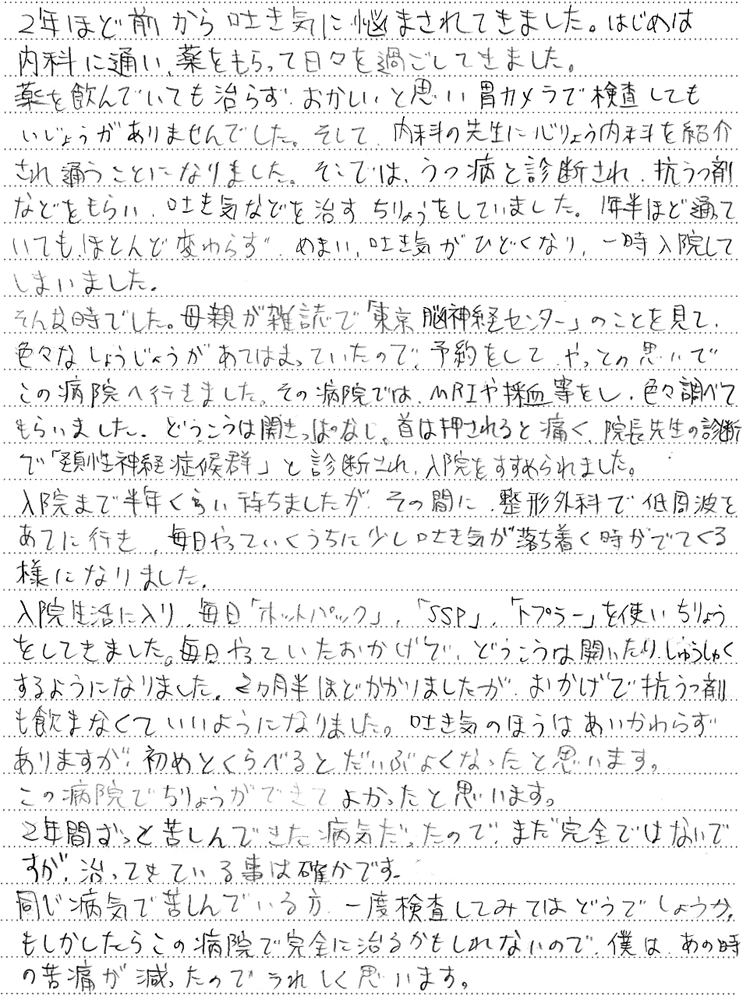 2年ほど前から吐き気に悩まされてきました。はじめは
内科に通い、薬をもらって日々を過ごしてきました。
薬を飲んでいても治らず、おかしいと思い胃カメラで検査しても
いじょうがありませんでした。そして、内科の先生に心りょう内科を紹介
され通うことになりました。そこでは、うつ病と診断され、抗うつ剤
などをもらい、吐き気などを治すちりょうをしていました。1年半ほど通って
いても、ほとんど変わらず、めまい、吐き気がひどくなり、一時入院して
しまいました。
そんな時でした。母親が雑誌で「東京脳神経センター」のことを見て、
色々なしょうじょうがあてはまっていたので、予約をして、やっとの思いで
この病院へ行きました。その病院では、MRIや採血等をし、色々調べて
もらいました。どうこうは開きっぱなし、首は押されると痛く、院長先生の診断
で「頚性神経症候群」と診断され、入院をすすめられました。
入院まで半年くらい待ちましたが、その間に、整形外科で低周波を
あてに行き、毎日やっていくうちに少し吐き気が落ち着く時がでてくる
様になりました。
入院生活に入り、毎日「ホットパック」、「SSP」、「トプラー」を使いちりょう
をしてきました。毎日やっていたおかげで、どうこうは開いたり、しゅうしゅく
するようになりました。2ヵ月半ほどかかりましたが、おかげで抗うつ剤
も飲まなくていいようになりました。吐き気のほうはあいかわらず
ありますが、初めとくらべるとだいぶよくなったと思います。
この病院でちりょうができてよかったと思います。
2年間ずっと苦しんできた病気だったので、まだ完全ではないで
すが、治ってきている事は確かです。
同じ病気で苦しんでいる方、一度検査してみてはどうでしょうか。
もしかしたらこの病院で完全に治るかもしれないので、僕は、あの時
の苦痛が減ったのでうれしく思います。